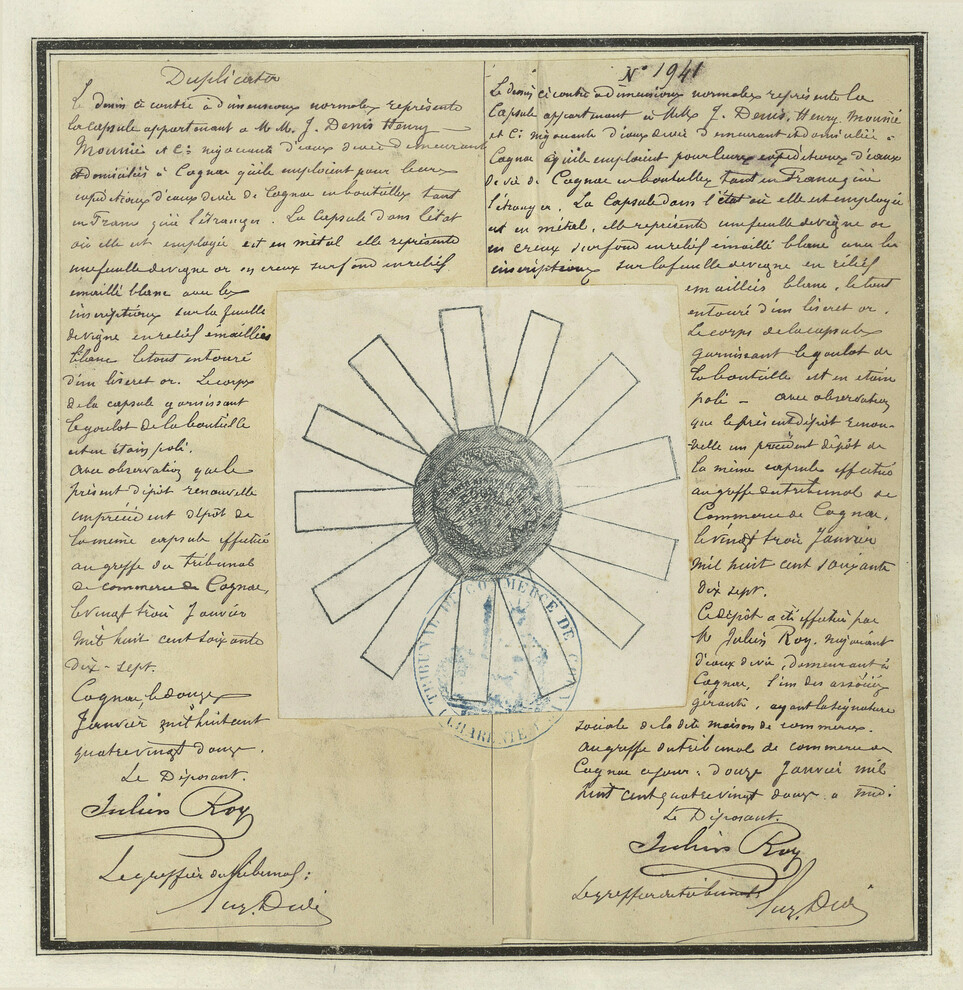 Duplicata
Le dessin ci contre à dimensions normales représente
la capsule appartenant à M M. J. Denis Henry
Mounié et Cie négociants d'eaux de vie demeurant
et domiciliés à Cognac qu'ils emploient pour leurs
expéditions d'eaux de vie de Cognac en bouteilles tant
en France qu'à l'étranger. La Capsule dans l'état
où elle est employée est en métal elle représente
une feuille de vigne or en creux sur fond en relief
émaillé blanc avec les
inscriptions sur la feuille
de vigne en relief émaillées
blanc le tout entouré
d'un liseret or. Le corps
de la capsule garnissant
le goulot de la bouteille
est en étain poli.
avec observation que le
présent dépôt renouvelle
un précédent dépôt de
la même capsule effectué
au greffe du tribunal
de commerce de Cognac,
le vingt trois Janvier
Mil huit cent soixante
dix-sept.
Cognac le douze
Janvier mil huit cent
quatre vingt douze.
Le Déposant.
Julien Roy
Le greffier du tribunal:
N° 1941
Le dessin ci contre à dimensions normales représente la
Capsule appartenant à MM J. Denis, Henry Mounié
et Cie négociants d'eaux de vie demeurant et domiciliés à
Cognac qu'ils emploient pour leurs expéditions d'eaux
de vie de Cognac en bouteilles tant en France qu'à
l'étranger. La Capsule dans l'état où elle est employée
est en métal, elle représente une feuille de vigne or
en creux sur fond en relief émaillé blanc avec les
inscriptions sur la feuille de vigne en relief
émaillées blanc, le tout
entouré d'un liseret or.
Le corps de la capsule
garnissant le goulot de
la bouteille est en étain
poli - avec observation
que le présent dépôt renou-
velle un précédent dépôt de
la même capsule effectué
au greffe du tribunal de
Commerce de Cognac,
le vingt trois Janvier
Mil huit cent soixante
dix sept.
Ce dépôt a été effectué par
M Julien Roy. négociant
d'eaux de vie, demeurant à
Cognac, l'un des associés
gérants, ayant la signature
sociale de la dite maison de commerce.
Au greffe du tribunal de commerce de
Cognac ce jour: douze Janvier mil
huit cent quatre vingt douze a midi
Le Déposant.
Julien Roy
Le greffier du tribunal
COGNAC
TRIBUNAL DE COMMERCE DE COGNAC
(CHARENTE)